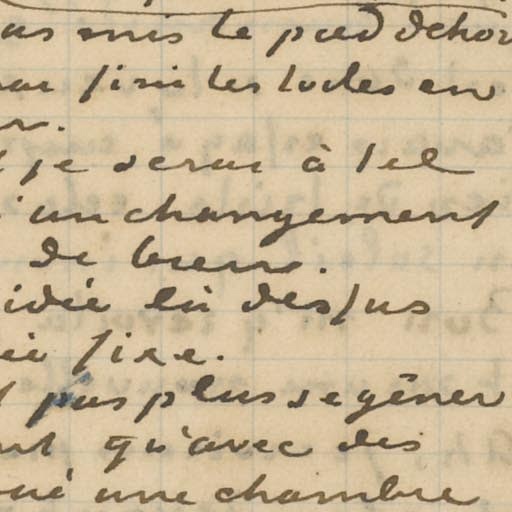 mis le pied dehor
fini les toiles en
je serai à tel
un changement
de bien.
idée là dessus
fixe.
pas plus se gêner
qu'avec des
une chambre